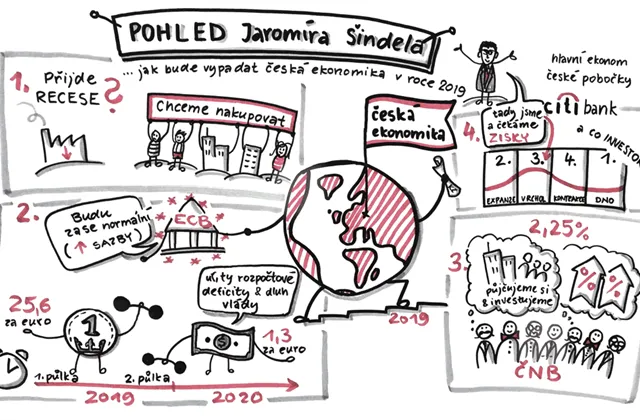 POHLED Jaromíra Šindela
... jak bude vypadat česká ekonomika v roce 2019
hlavní ekonom
české pobočky
citi bank
a co INVESTOŘI
1. Přijde
RECESE?
Chceme nakupovat
česká
ekonomika
tady jsme
a čekáme
ZISKY
4.
2. 3. 4. 1.
EXPANZE VRCHOL KONTRAKCE DNO
2.
Budu
zase normální
(↑ SAZBY)
ECB
ušity rozpočtové
deficity & dluh
vlády
25,6
za euro
1
$
1,3
za euro
1. půlka
2. půlka
2019
2020
2019
3.
2,25%
půjčujeme si
& investujeme
% %
ČNB